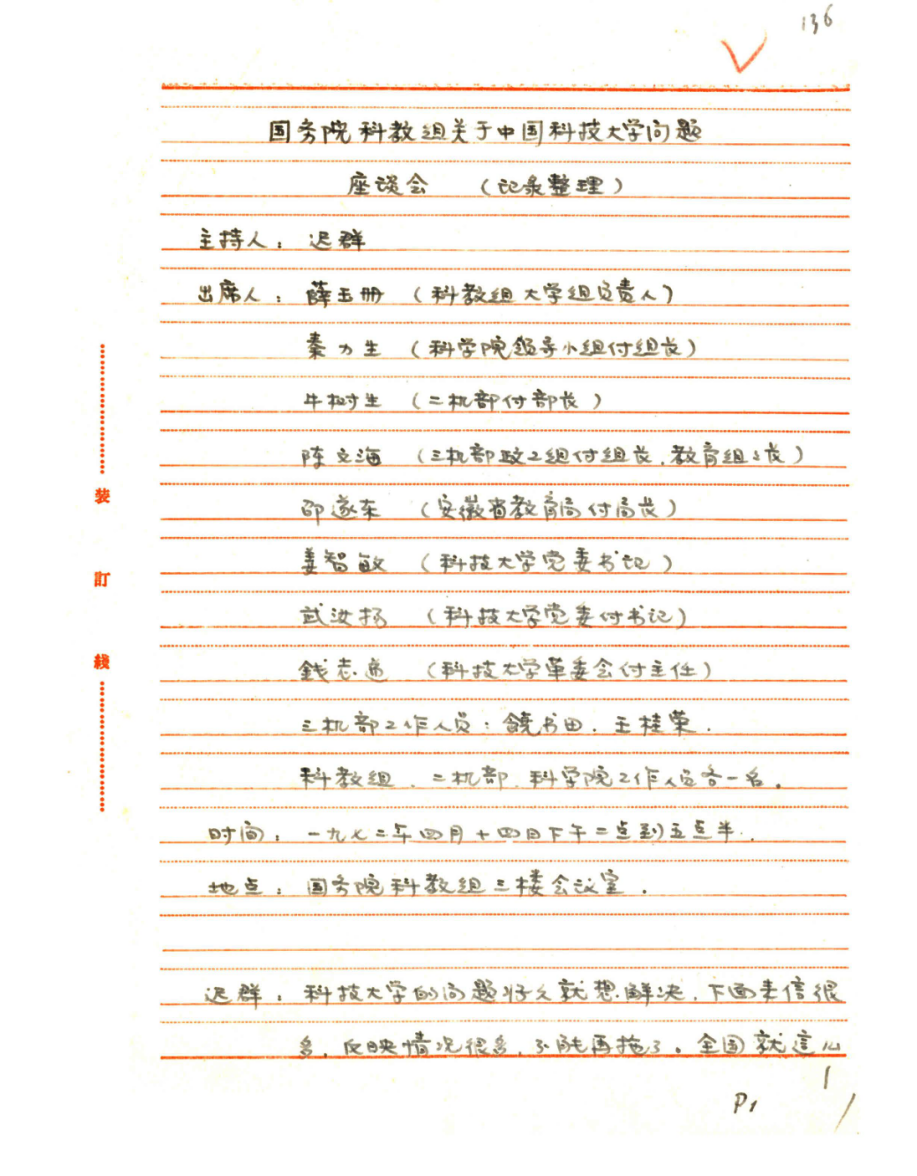 136
国务院科教组关于中国科技大学问题
座谈会 （记录整理）
主持人：迟群
出席人：薛玉册（科教组大学组负责人）
秦力生（科学院领导小组付组长）
牛树生（二机部付部长）
陈文海（三机部政工组付组长、教育组组长）
邵遂东（安徽省教育局付局长）
姜智敏（科技大学党委书记）
武汝扬（科技大学党委付书记）
錢志道（科技大学革委会付主任）
三机部工作人员：饒书田、王桂荣.
科教组、二机部、科学院工作人员各一名。
时间：一九七二年四月十四日下午二点到五点半.
地点：国务院科教组三楼会议室.
迟群：科技大学的问题好久就想解决，下面来信很
多，反映情况很多，不能再拖了。全国就這几
装
訂
綫
P1
1